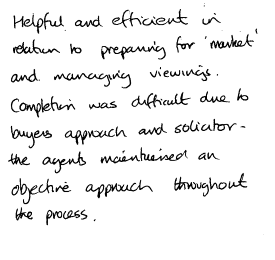 Helpful and efficient in
relation to preparing for 'market'
and managing viewings.
Completion was difficult due to
buyers approach and solicitor -
the agents maintained an
objective approach throughout
the process.